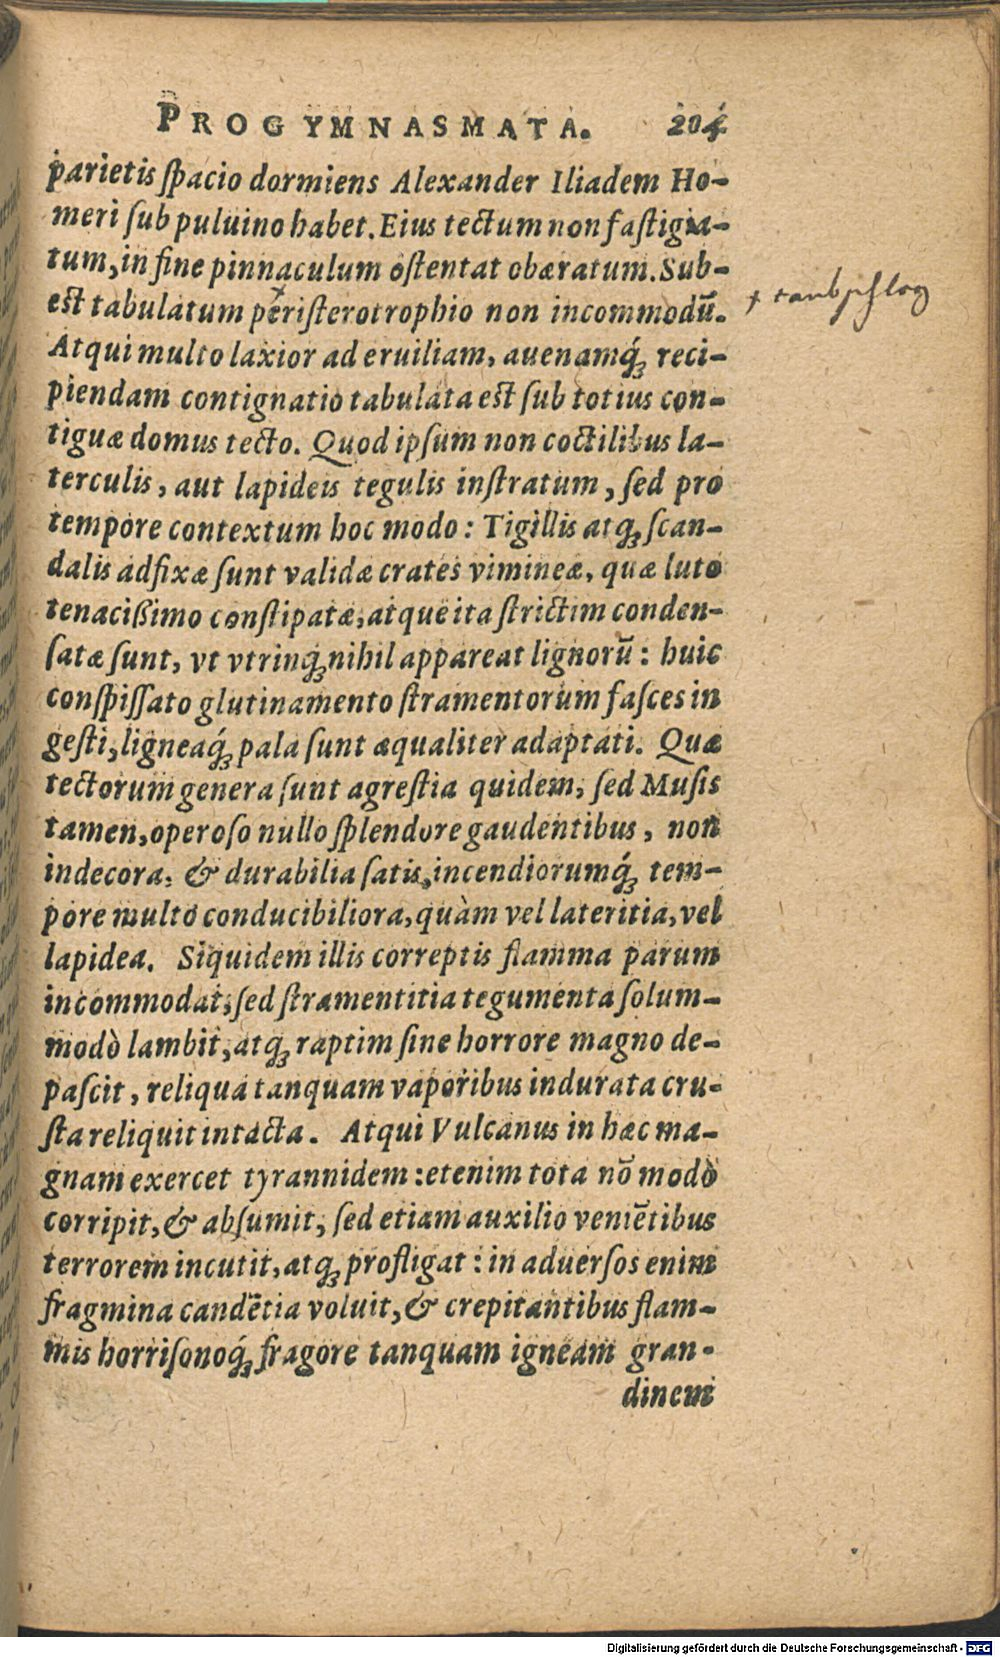 PROGYMNASMATA. 204
parietis ſpacio dormiens Alexander Iliadem Ho-
meri ſub puluino habet. Eius tectum non faſtigia-
tum, in fine pinnaculum oſtentat obæratum. Sub-
est tabulatum periſterotrophio non incommodũ.
Atqui multo laxior ad eruiliam, auenamq́ꝫ reci-
piendam contignatio tabulata est ſub totius con-
tiguæ domus tecto. Quod ipſum non coctilibus la-
terculis, aut lapideis tegulis inſtratum, ſed pro
tempore contextum hoc modo: Tigillis atqꝫ ſcan-
dalis adfixæ ſunt validæ crates vimineæ, quæ luto
tenacißimo conſtipatæ, atque ita ſtrictim conden-
ſatæ ſunt, vt vtrinqꝫ nihil appareat lignorũ: huic
conſpiſſato glutinamento ſtramentorum faſces in
geſti, ligneaq́ꝫ pala ſunt æqualiter adaptati. Quæ
tectorum genera ſunt agreſtia quidem, ſed Muſis
tamen, operoſo nullo ſplendore gaudentibus, non
indecora, & durabilia ſatis, incendiorumq́ꝫ tem-
pore multo conducibiliora, quàm vel lateritia, vel
lapidea. Siquidem illis correptis flamma parum
incommodat, ſed ſtramentitia tegumenta ſolum-
modò lambit, atqꝫ raptim ſine horrore magno de-
paſcit, reliqua tanquam vaporibus indurata cru-
ſta reliquit intacta. Atqui Vulcanus in hæc ma-
gnam exercet tyrannidem: etenim tota nõ modò
corripit, & abſumit, ſed etiam auxilio veniẽtibus
terrorem incutit, atqꝫ profligat: in aduerſos enim
fragmina candẽtia voluit, & crepitantibus flam-
mis horriſonoq́ꝫ fragore tanquam igneam gran-
dinem
Digitalisierung gefördert durch die Deutsche Forschungsgemeinschaft - DFG